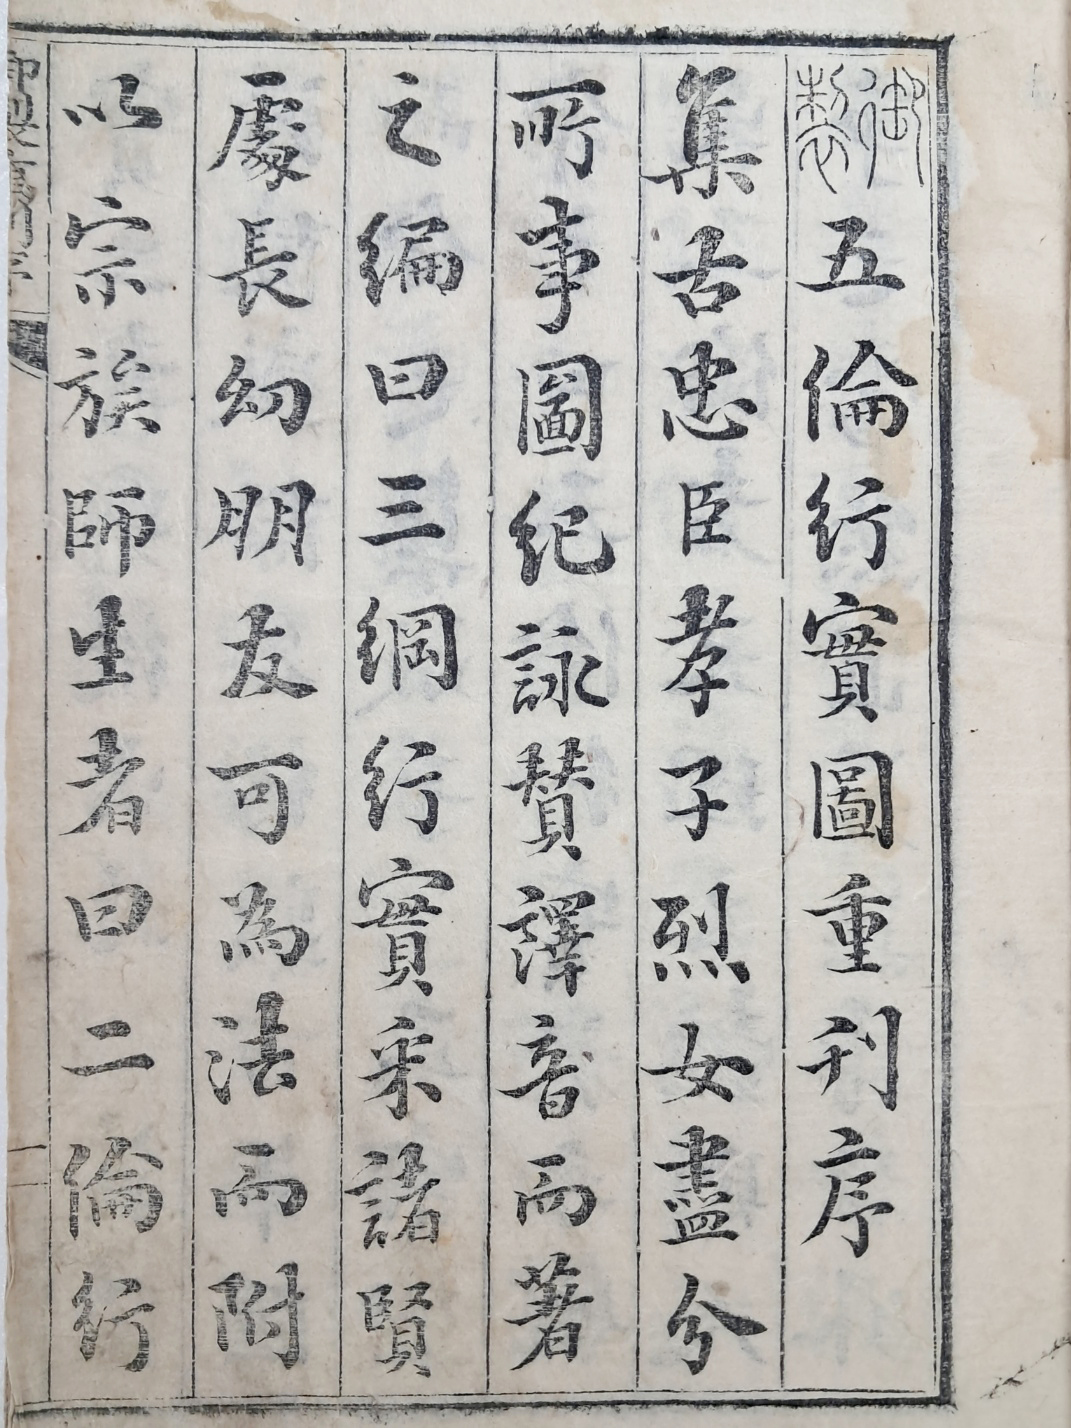 御製五倫行實圖重刊序
集古忠臣孝子烈女盡分
所事圖紀詠賛譯音而著
之編曰三綱行實采諸賢
處長幼朋友可為法而附
以宗族師生者曰二倫行